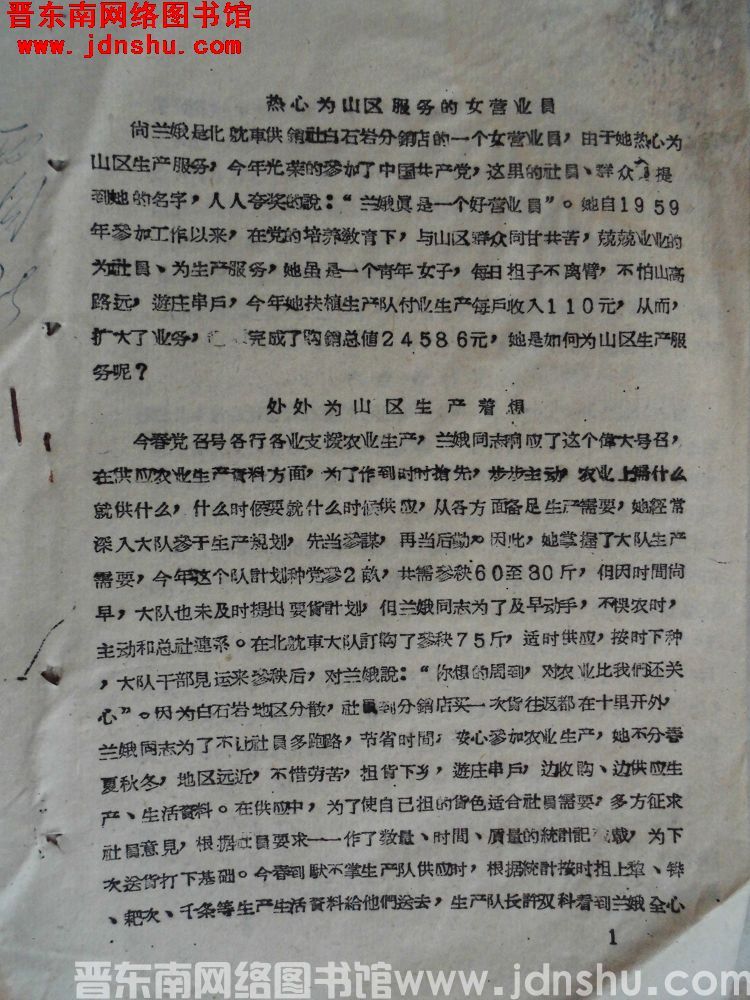 晋东南网络图书馆
www.jdnshu.com
热心为山区服务的女营业员
尚兰娥是北就車供銷社白石岩分銷店的一个女营业员，由于她热心为
山区生产服务，今年光荣的参加了中国共产党，这里的社员、群众 提
到她的名字，人人夸奖的說：“兰娥眞是一个好营业员”。她自1959
年参加工作以来，在党的培养教育下，与山区群众同甘共苦，兢兢业业的
为社员、为生产服务，她虽是一个青年女子，每日担子不离臂，不怕山高
路远，遊庄串戶，今年她扶植生产队付业生产每戶收入110元，从而，
扩大了业务， 完成了购銷总値24586元，她是如何为山区生产服
务呢？
处处为山区生产着想
今春党召号各行各业支援农业生产，兰娥同志响应了这个偉大号召，
在供应农业生产資料方面，为了作到时时抢先，步步主动，农业上需什么
就供什么，什么时候要就什么时候供应，从各方面备足生产需要，她經常
深入大队參于生产規划，先当參謀，再当后勤。因此，她掌握了大队生产
需要，今年这个队計划种党參2畝，共需參秧60至80斤，但因时間尚
早，大队也未及时提出要貨計划，但兰娥同志为了及早动手，不悞农时，
主动和总社連系。在北就車大队訂购了參秧75斤，适时供应，按时下种
，大队干部見运来參秧后，对兰娥說：“你想的周到，对农业比我們还关
心”。因为白石岩地区分散，社员到分銷店买一次貨往返都在十里开外，
兰娥同志为了不让社员多跑路，节省时間，安心參加农业生产，她不分春
夏秋冬，地区远近，不惜劳苦，担貨下乡，遊庄串戶，边收购、边供应生
产、生活資料。在供应中，为了使自已担的貨色适合社员需要，多方征求
社员意見，根据社员要求一一作了数量、时間、质量的統計記 載，为下
次送貨打下基础。今春到馱不掌生产队供应时，根据統計按时担上犂、铧
、耙次、千条等生产生活資料給他們送去，生产队长許双科看到兰娥全心
1
晋东南网络图书馆www.jdnshu.com